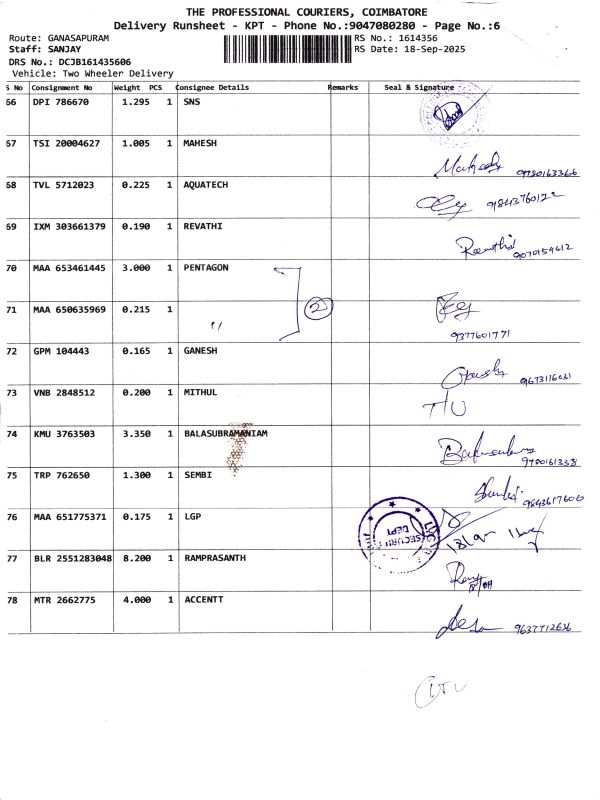 THE PROFESSIONAL COURIERS, COIMBATORE
Delivery Runsheet - KPT - Phone No.:9047080280 - Page No.:6
Route: GANASAPURAM RS No.: 1614356
Staff: SANJAY RS Date: 18-Sep-2025
DRS No.: DCJB161435606
Vehicle: Two Wheeler Delivery
S No Consignment No Weight PCS Consignee Details Remarks Seal & Signature
66 DPI 786670 1.295 1 SNS
67 TSI 20004627 1.005 1 MAHESH
9780163366
68 TVL 5712023 0.225 1 AQUATECH
69 IXM 303661379 0.190 1 REVATHI
Revathi
70 MAA 653461445 3.000 1 PENTAGON
2
71 MAA 650635969 0.215 1 "
9377601771
72 GPM 104443 0.165 1 GANESH
73 VNB 2848512 0.200 1 MITHUL
74 KMU 3763503 3.350 1 BALASUBRAMANIAM
9780161338
75 TRP 762650 1.300 1 SEMBI
76 MAA 651775371 0.175 1 LGP
SECURITY
DEPT
77 BLR 2551283048 8.200 1 RAMPRASANTH
78 MTR 2662775 4.000 1 ACCENTT
9637712636